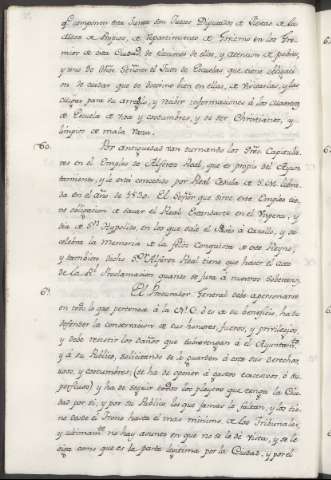 qe. componen esta Junta son Jueces Diputados de
de Repartimiento de Gremios en los Gre-
mios de esta Ciudad, de elecciones de ellas, y atencion de pobres,
y uno de dhos. Señores el Juez de Escuelas que tiene obligaci-
on de cuidar que se doctrine bien en ellas, de visitarlas, y las
para su arreglo, y recibir informaciones á los Maestros
de Escuela de vida y costumbres, y de ser Christianos, y
limpios de mala Raza.
60. Por antiguedad van turnando los Sres. Capitula-
res en el Empleo de Alferez Real, que es propio del Ayun-
tamiento, y le está concedido por Real Cedula de S.M. libra-
da en el año de 1530. El Señor que sirve este Empleo tie-
ne obligacion de sacar el Real Estandarte en el Vispera, y
dia de Sn. Hipolito, en los que sale el Paseo á Cavallo, y se
celebra la memoria de la feliz Conquista de este Reyno;
y tambien dicho Sor. Alferez Real tiene que hacer el acto
de la Rl. Proclamacion quando se jura á nuestros Soberanos.
61. El Procurador General debe apersonarse
en todo lo que pertenece á la N.C. ó es de su beneficio, ha de
defender la conservacion de sus honores, fueros, y privilegios,
y debe resistir los daños que sobrevengan á el Ayuntamto.
y á su Publico, solicitando se le guarden á este sus derechos,
usos, y costumbres; (se ha de oponer á gastos excesivos ó su-
perfluos) y ha de seguir todos los pleytos que tenga la Ciu-
dad por sí, y por su Publico los que jamas le faltan, y los tie-
ne desde el Trono hasta el mas minimo de los Tribunales,
y ultimamte. no hay asunto en que no se le dé vista, y se le
oiga como que es la parte legitima por la Ciudad, y por el